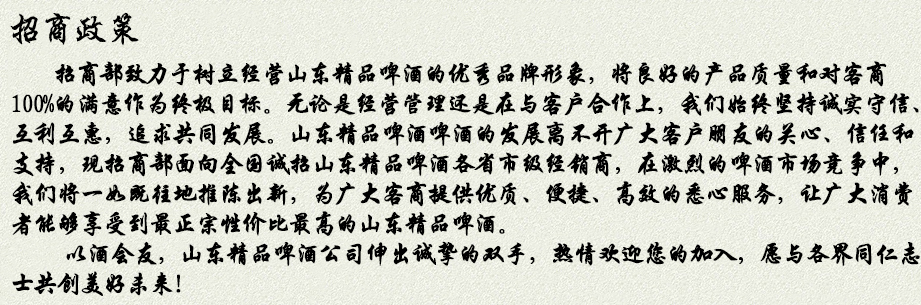 招商政策
招商部致力于树立经营山东精品啤酒的优秀品牌形象，将良好的产品质量和对客商
100%的满意作为终极目标。无论是经营管理还是在与客户合作上，我们始终坚持诚实守信、
互利互惠，追求共同发展。山东精品啤酒啤酒的发展离不开广大客户朋友的关心、信任和
支持，现招商部面向全国诚招山东精品啤酒各省市级经销商，在激烈的啤酒市场竞争中，
我们将一如既往地推陈出新，为广大客商提供优质、便捷、高效的悉心服务，让广大消费
者能够享受到最正宗性价比最高的山东精品啤酒。
以酒会友，山东精品啤酒公司伸出诚挚的双手，热情欢迎您的加入，愿与各界同仁志
士共创美好未来！